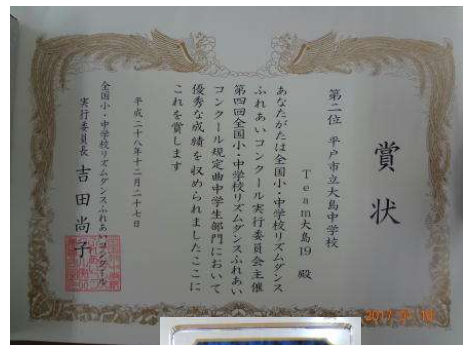 賞状
第二位 平戸市立大島中学校
Team大島19 殿
あなたがたは全国小・中学校リズムダンス
ふれあいコンクール実行委員会主催
第四回全国小・中学校リズムダンスふれあい
コンクール規定曲中学生部門において
優秀な成績を収められましたここに
これを賞します
平成二十八年十二月二十七日
全国小・中学校リズムダンスふれあいコンクール
実行委員長 吉田尚子